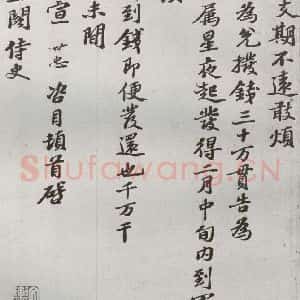 文期不遠敢煩
為兌撥錢三十万貫告為
属星夜起發得一月中旬内到
到錢即便發還也千万千
未間
宣 世忠 咨目頓首啓
閤侍史
Shufawang.CN